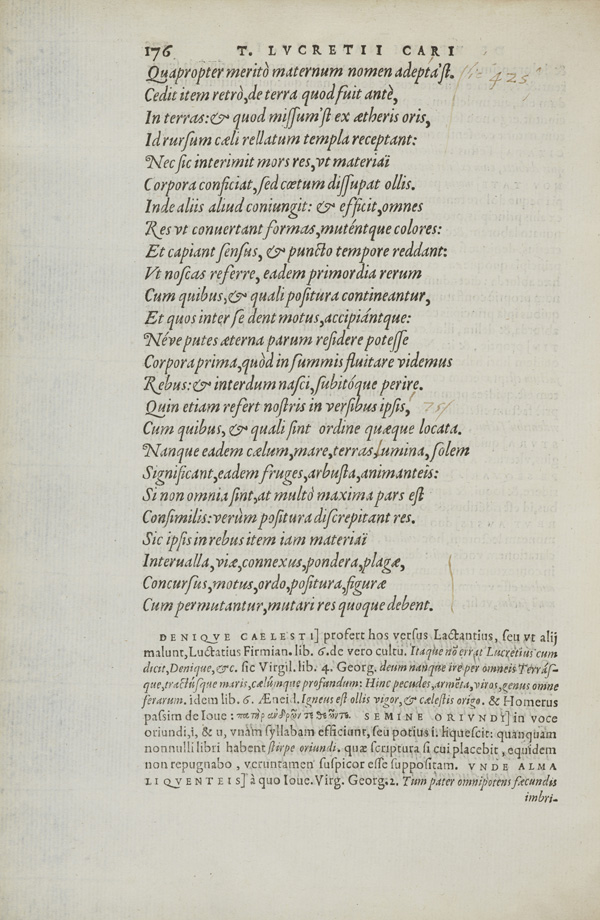 176 T. LVCRETII CARI
Quapropter meritò maternum nomen adepta'st.
425
Cedit item retrò, de terra quod fuit antè,
In terras: & quod missum'st ex ætheris oris,
Id rursum cæli rellatum templa receptant:
Nec sic interimit mors res, vt materiaï
Corpora conficiat, sed cœtum dissupat ollis.
Inde aliis aliud coniungit: & efficit, omnes
Res vt conuertant formas, muténtque colores:
Et capiant sensus, & puncto tempore reddant:
Vt noscas referre, eadem primordia rerum
Cum quibus, & quali positura contineantur,
Et quos inter se dent motus, accipiántque:
Néve putes æterna parum residere potesse
Corpora prima, quòd in summis fluitare videmus
Rebus: & interdum nasci, subitóque perire.
Quin etiam refert nostris in versibus ipsis,
Cum quibus, & quali sint ordine quæque locata.
Nanque eadem cælum, mare, terras, lumina, solem
Significant, eadem fruges, arbusta, animanteis:
Si non omnia sint, at multò maxima pars est
Consimilis: verùm positura discrepitant res.
Sic ipsis in rebus item iam materiaï
Interualla, viæ, connexus, pondera, plagæ,
Concursus, motus, ordo, positura, figuræ
Cum permutantur, mutari res quoque debent.
DENIQVE CAELESTI] profert hos versus Lactantius, seu vt alij
malunt, Luctatius Firmian. lib. 6. de vero cultu. Itaque nō errat Lucretius cum
dicit, Denique, &c. sic Virgil. lib. 4. Georg. deum nanque ire per omneis Terrás-
que, tractúsque maris, cælúmque profundum: Hinc pecudes, armēta, viros, genus omne
ferarum. idem lib. 6. Æneid. Igneus est ollis vigor, & cælestis origo. & Homerus
passim de Ioue: πατὴρ ἀνδρῶν τε θεῶν τε. SEMINE ORIVNDI] in voce
oriundi, i, & u, vnam syllabam efficiunt, seu potius i. liquescit: quanquam
nonnulli libri habent stirpe oriundi. quæ scriptura si cui placebit, equidem
non repugnabo, veruntamen suspicor esse suppositam. VNDE ALMA
LIQVENTEIS] à quo Ioue. Virg. Georg. 2. Tum pater omnipotens fæcundis
imbri-